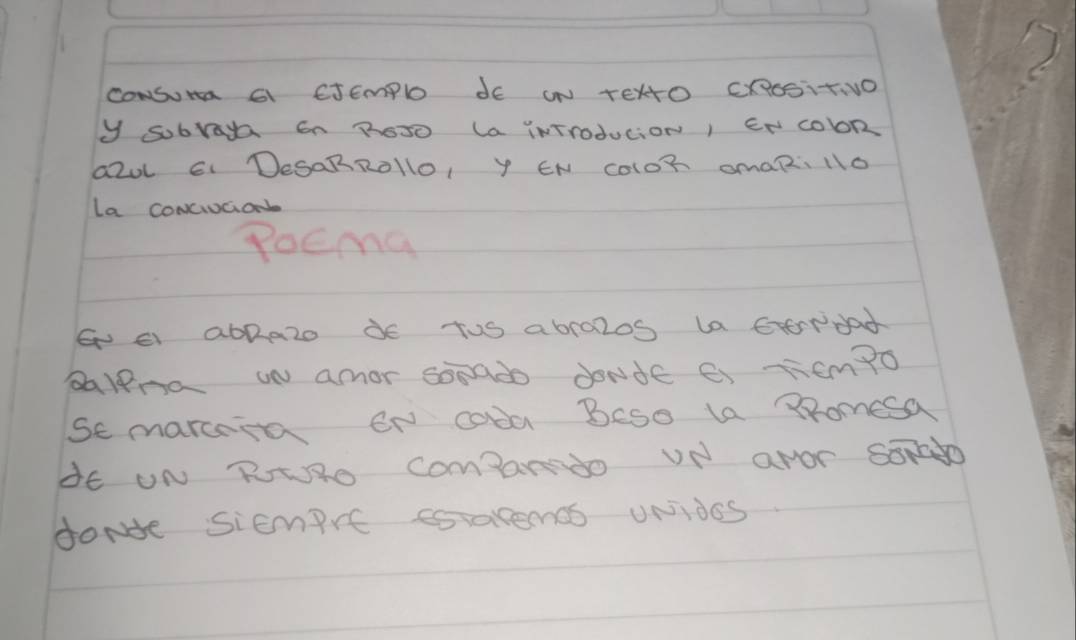 CONSulta El EJEmPlo de UN TEXTO EXPOSiTiVO
y Subraya En ROJO la iNTroduciON, EN COlOR
azul El DesaRRollo, y EN COlOR amaRillo
la CONcluciON
POEma
EN El abRazo de tus abrazos la EterNidad
Palpita UN amor soñado doNde El TiEmPo
SE marchita EN cada BESO la PROmESA
de UN FuTuRO comPartido UN amor soñado
doNde siEmPrE EstaREmos UNidos.